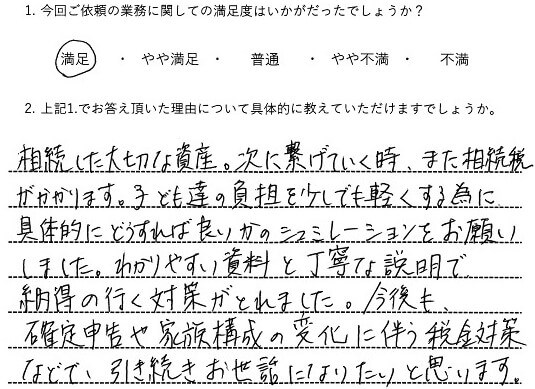 1. 今回ご依頼の業務に関しての満足度はいかがだったでしょうか？
満足 ・ やや満足 ・ 普通 ・ やや不満 ・ 不満
2. 上記1.でお答え頂いた理由について具体的に教えていただけますでしょうか。
相続した大切な資産。次に繋げていく時、また相続税
がかかります。子ども達の負担を少しでも軽くする為に
具体的にどうすれば良いかのシュミレーションをお願い
しました。わかりやすい資料と丁寧な説明で
納得の行く対策がとれました。今後も、
確定申告や家族構成の変化に伴う税金対策
などで、引き続きお世話になりたいと思います。